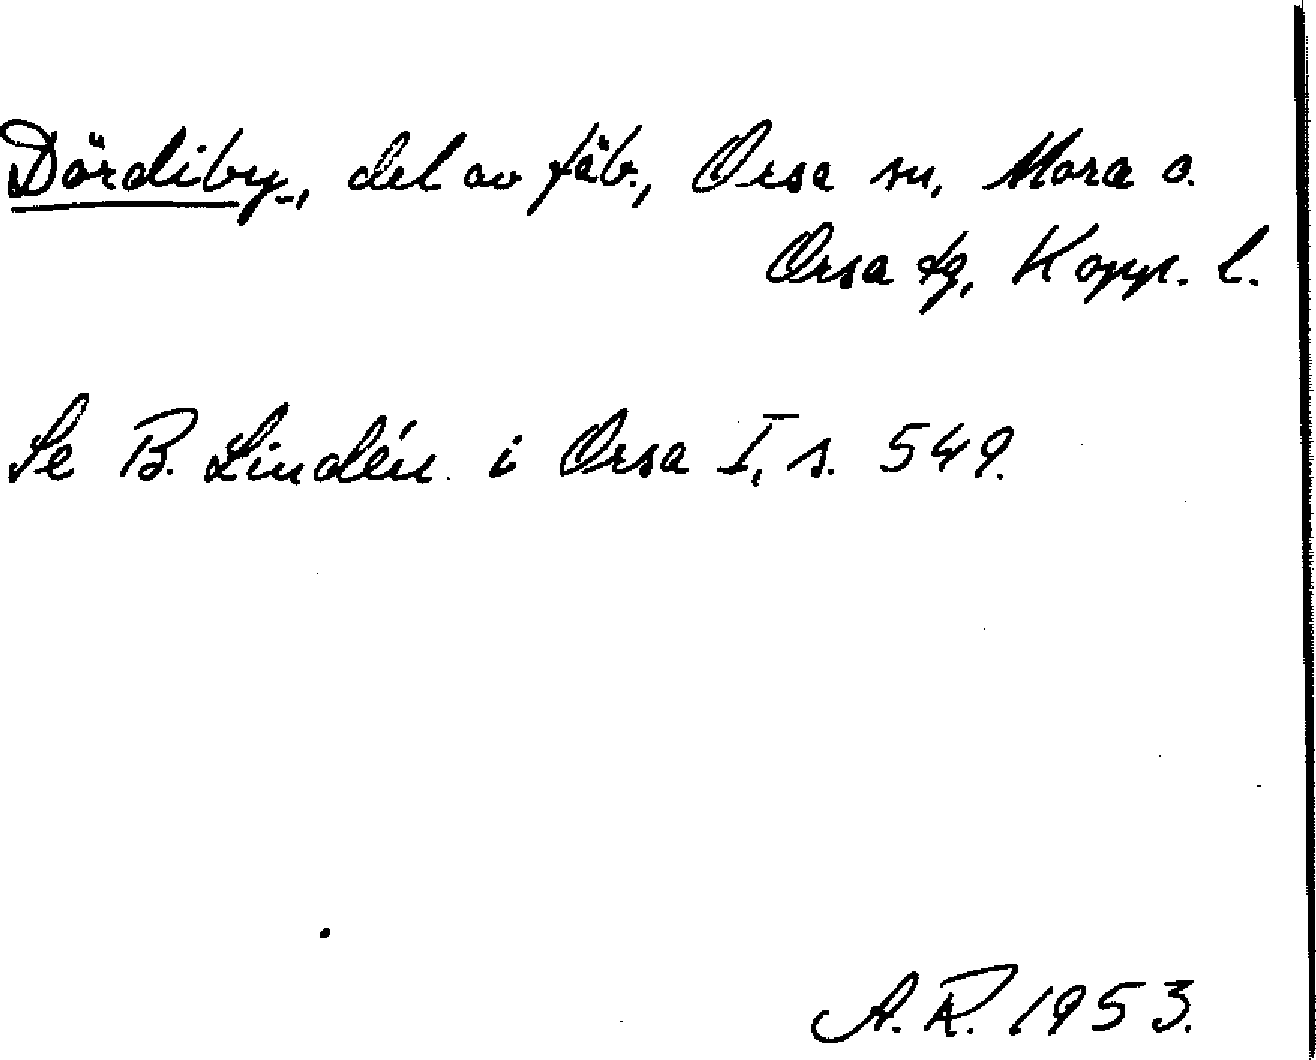 Dördiby, del av fäb., Orsa sn, Mora o.
Orsa tg, Kopp. l.
Se B. Lindén i Orsa I, s. 549.
A. R. 1953.